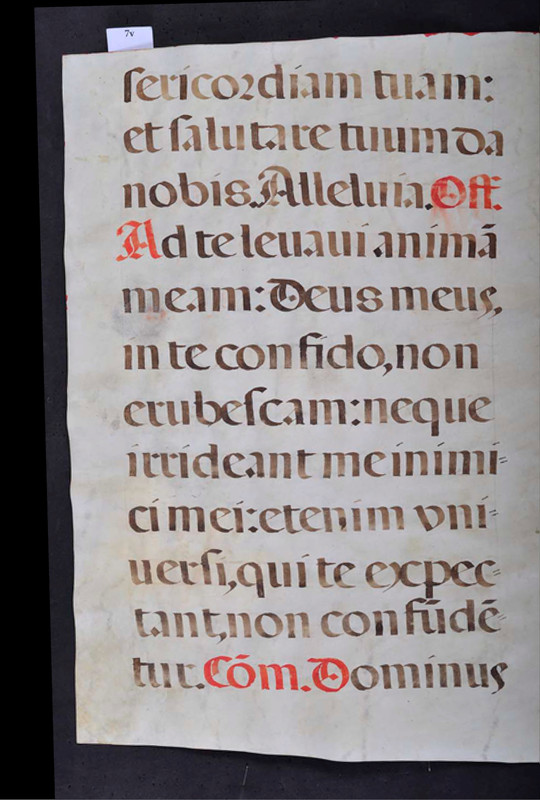 7v
sericordiam tuam:
et salutare tuum da
nobis. Alleluia. Off.
Ad te leuaui animā
meam: Deus meus,
in te confido, non
erubescam: neque
irrideant me inimi-
ci mei: etenim vni-
uersi, qui te expec-
tant, non confūdē-
tur. Cōm. Dominus